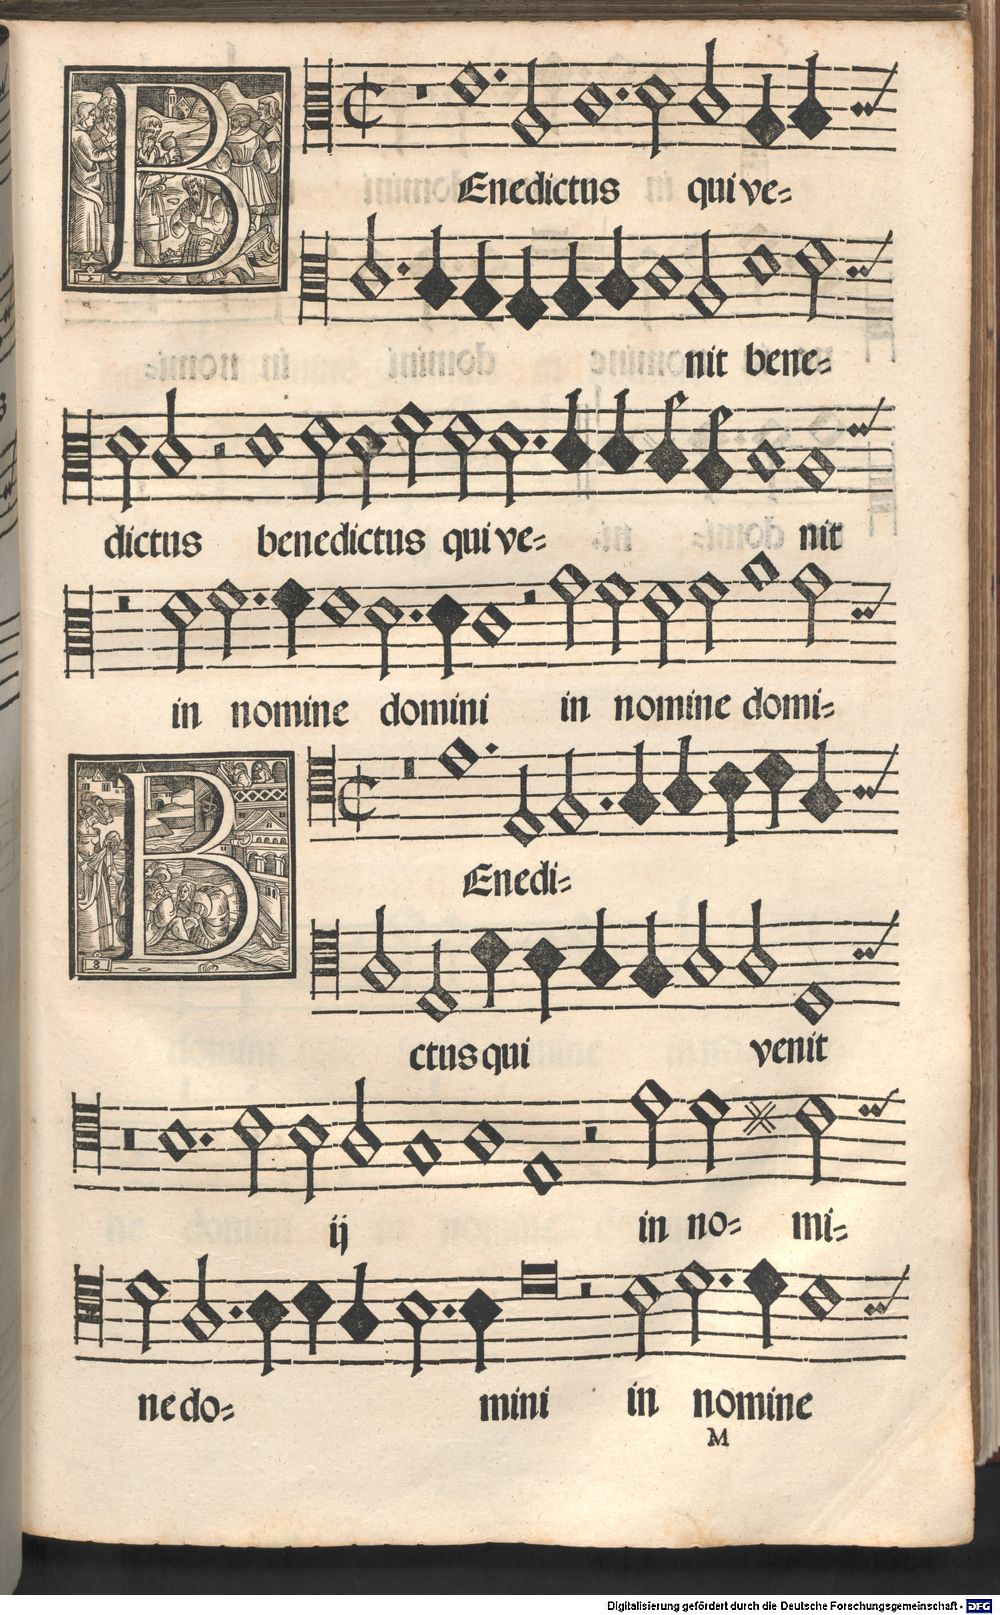 BEnedictus qui ve=
nit bene=
dictus benedictus qui ve= nit
in nomine domini in nomine domi=
BEnedi=
ctus qui venit
ij in no= mi=
ne do= mini in nomine
M
Digitalisierung gefördert durch die Deutsche Forschungsgemeinschaft - DFG